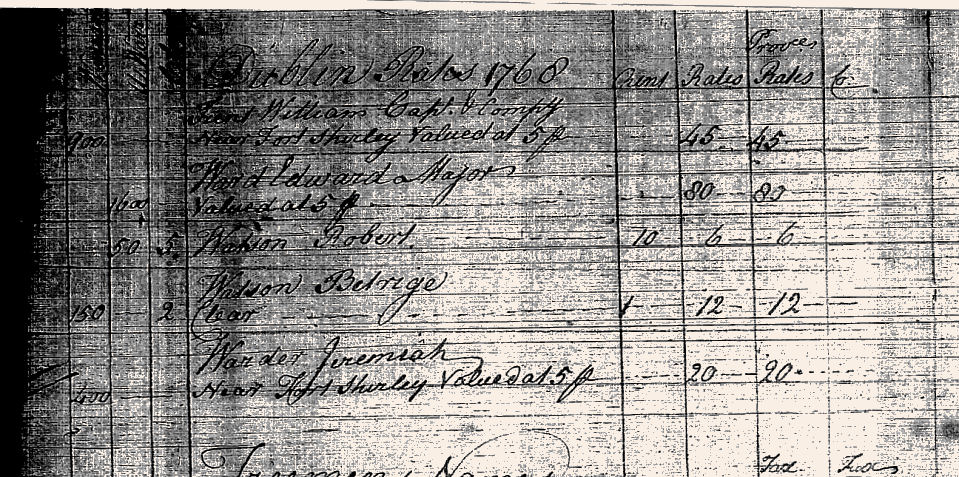 Proves
Dublin Rates 1768 Rates Rates
William Capt. & Compy
900 Near Fort Shirley Valued at 5 p 45 45
Ward Edward Major
1600 Valued at 5 p 80 80
50 5 Watson Robert 10 6 6
Watson Betrige
150 2 Clear 1 12 12
Warder Jeremiah
400 Near Fort Shirley Valued at 5 p 20 20
Names